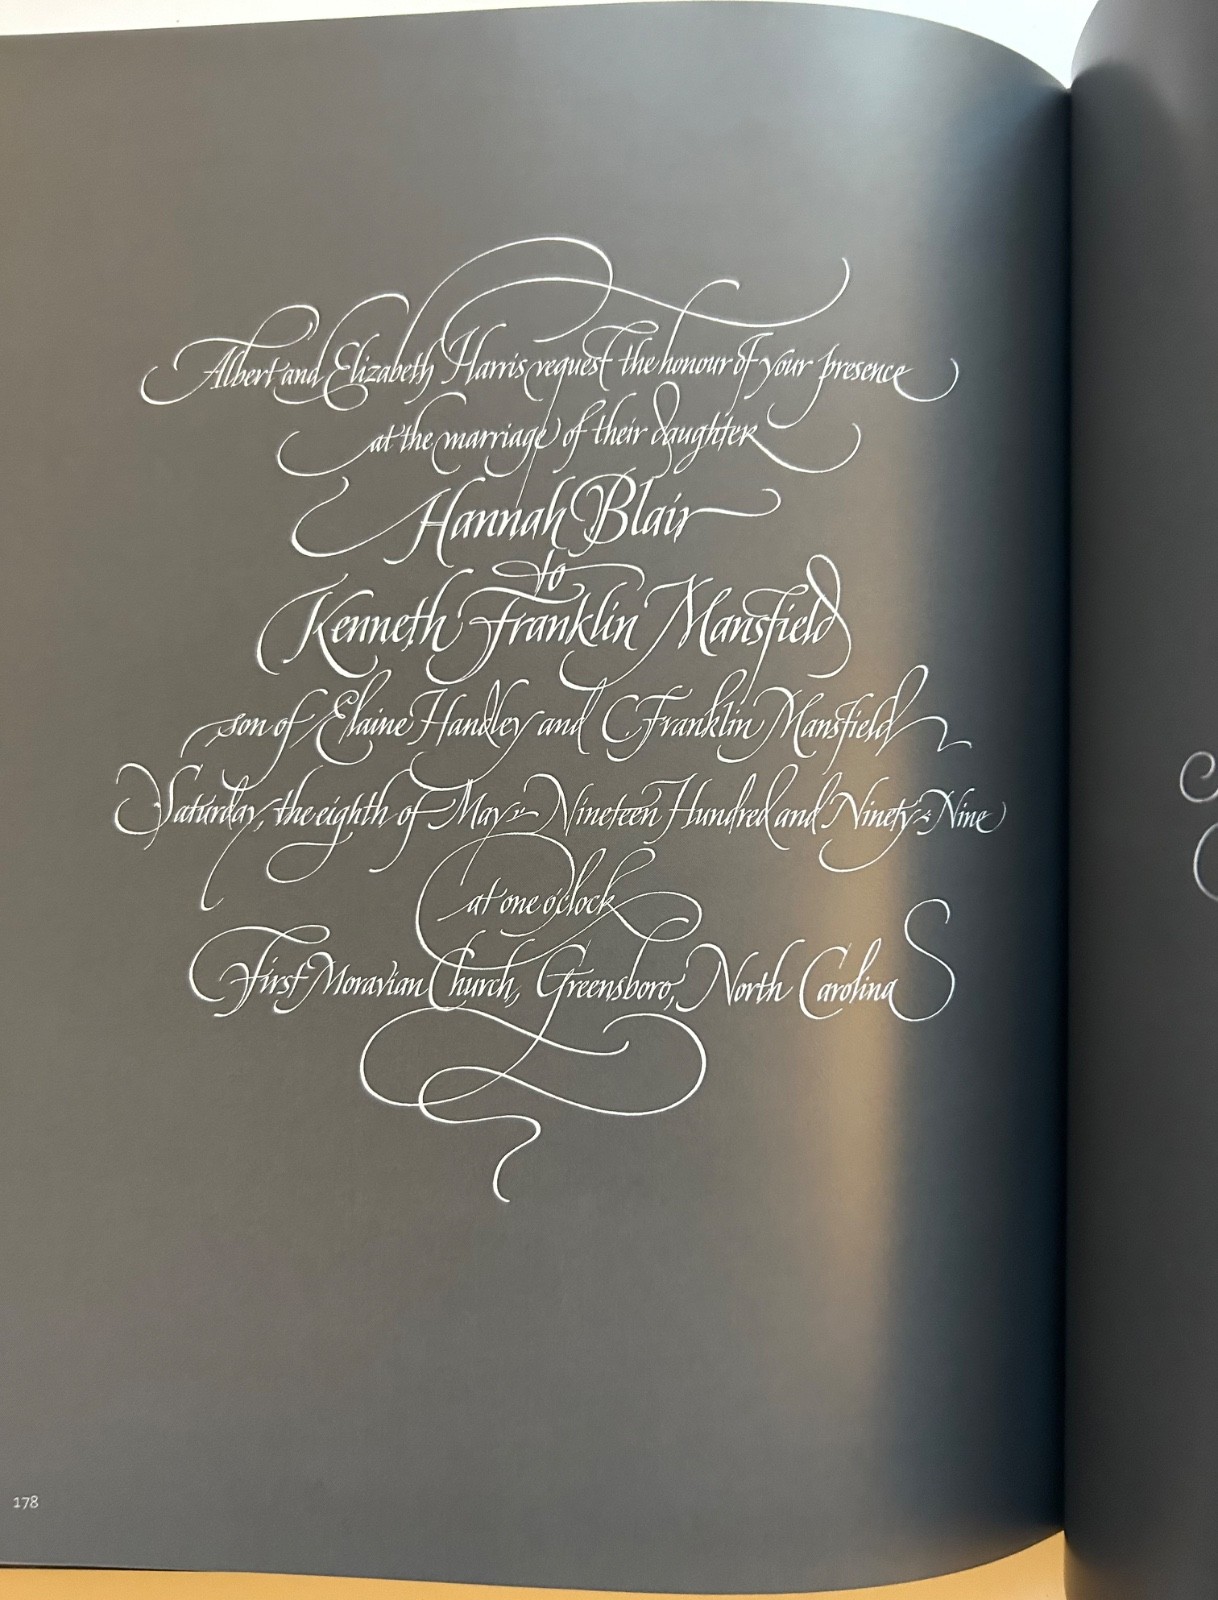 Albert and Elizabeth Harris request the honour of your presence
at the marriage of their daughter
Hannah Blair
to
Kenneth Franklin Mansfield
son of Elaine Handley and C. Franklin Mansfield
Saturday, the eighth of May ~ Nineteen Hundred and Ninety-Nine
at one o'clock
First Moravian Church, Greensboro, North Carolina
178